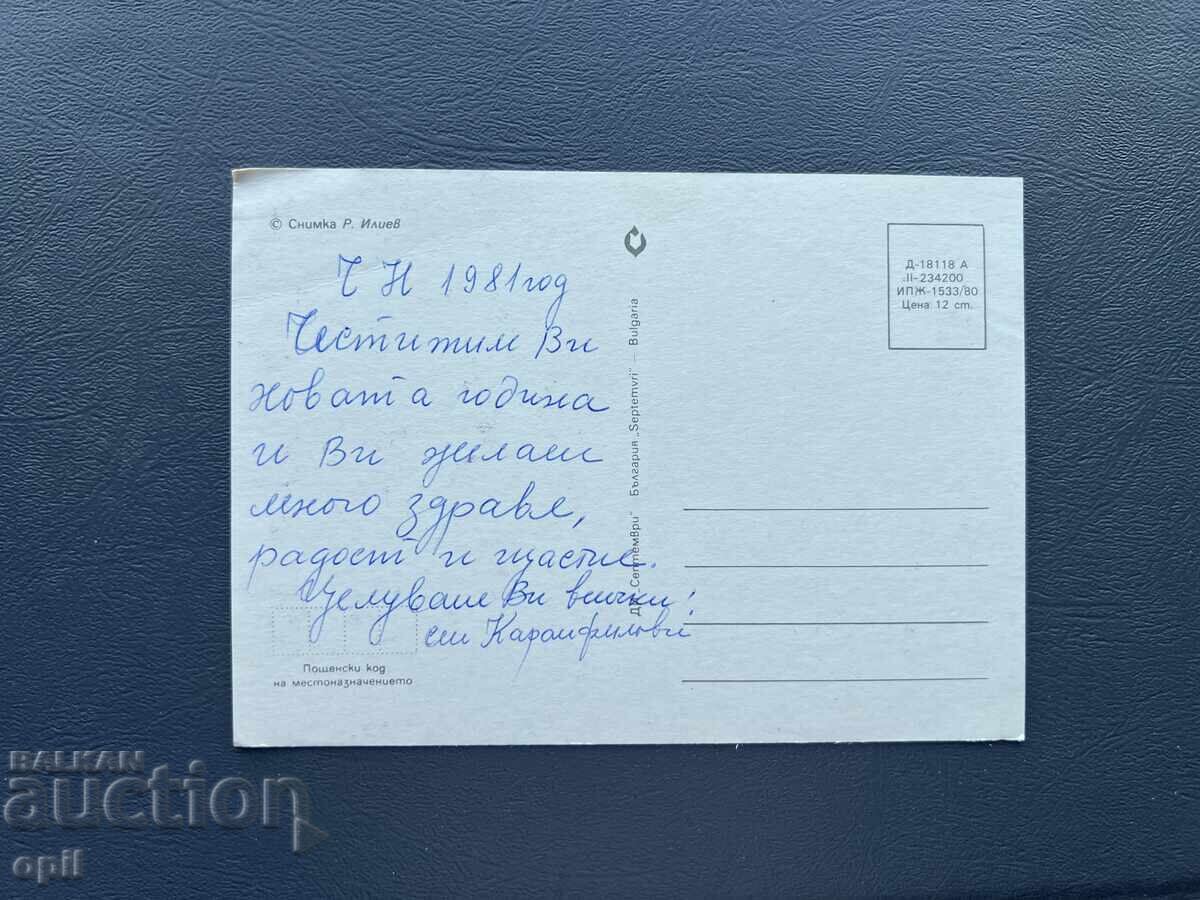 © Снимка Р. Илиев
Ч Н 1981 год
Честитим Ви
новата година
и Ви желаем
много здраве,
радост и щастие.
Целуваме Ви всички!
сем Карамфилови
Пощенски код
на местоназначението
ДП „Септември" България „Septemvri" — Bulgaria
Д-18118 А
II-234200
ИПЖ-1533/80
Цена 12 ст.
BALKAN
auction
opil